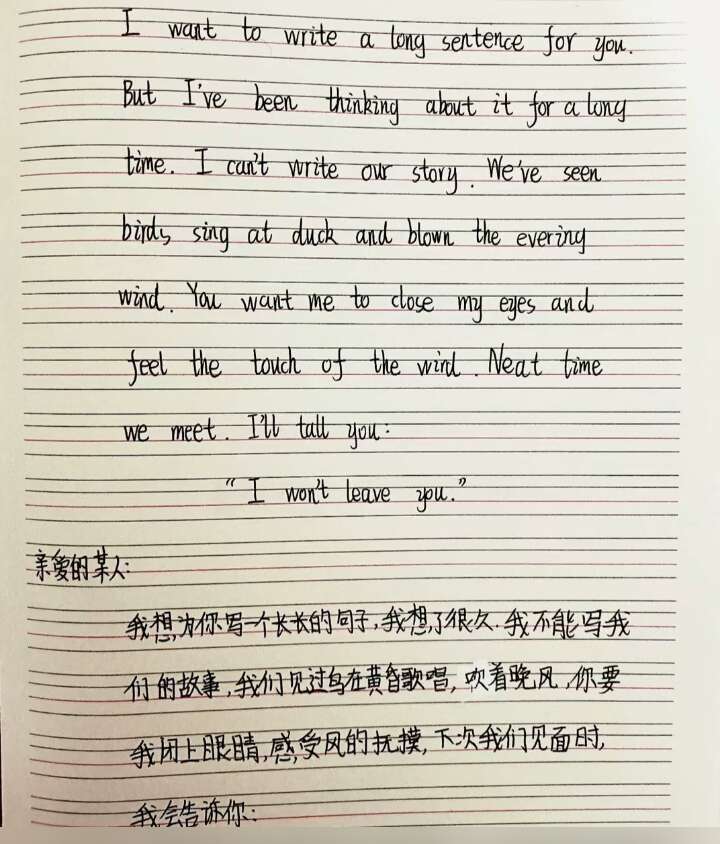 I want to write a long sentence for you.
But I've been thinking about it for a long
time. I can't write our story. We've seen
birds sing at duck and blown the evering
wind. You want me to close my eyes and
feel the touch of the wird. Neat time
we meet. I'll tall you:
"I won't leave you."
亲爱的某人:
我想为你写一个长长的句子,我想了很久.我不能写我
们的故事,我们见过鸟在黄昏歌唱,吹着晚风,你要
我闭上眼睛,感受风的抚摸,下次我们见面时,
我会告诉你: